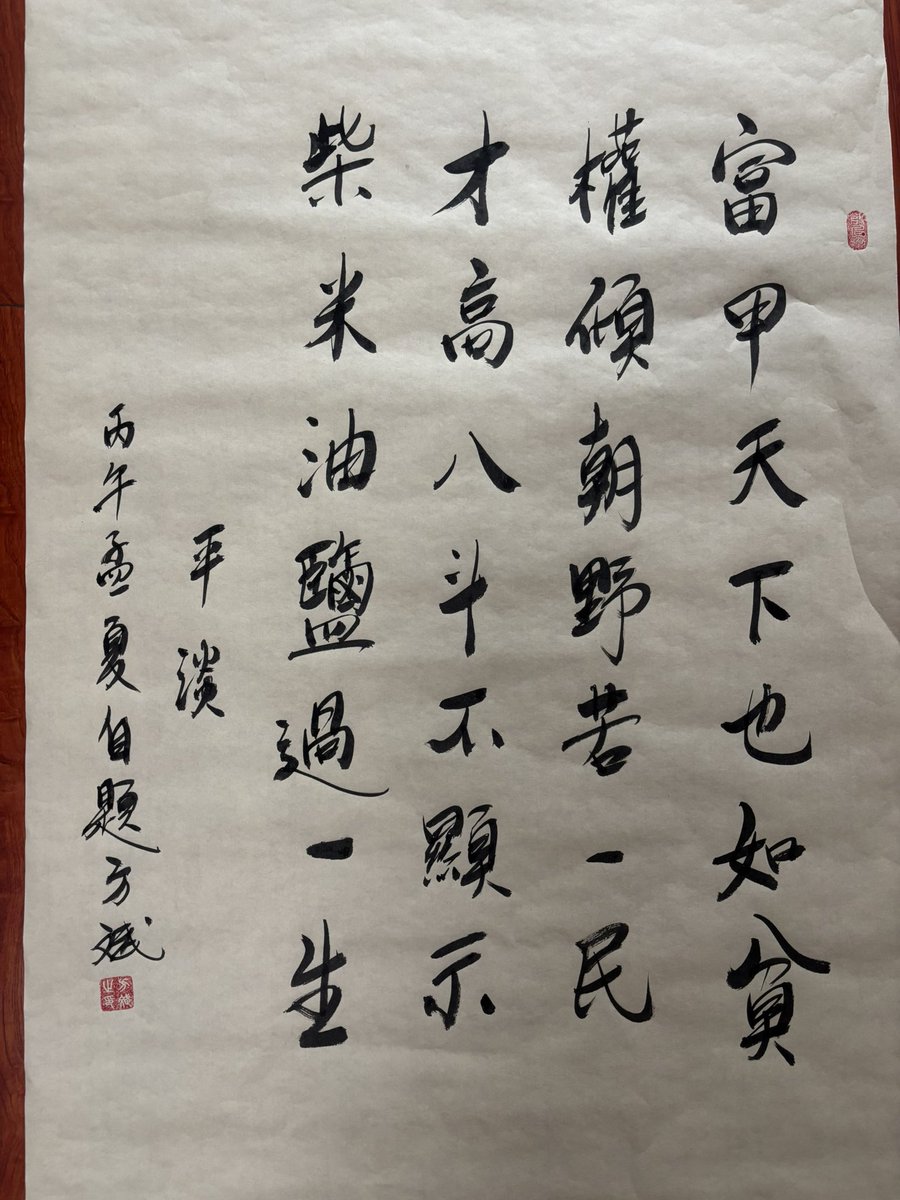 富甲天下也如貧
權傾朝野若一民
才高八斗不顯示
柴米油鹽過一生
平淡
丙午孟夏自題方斌